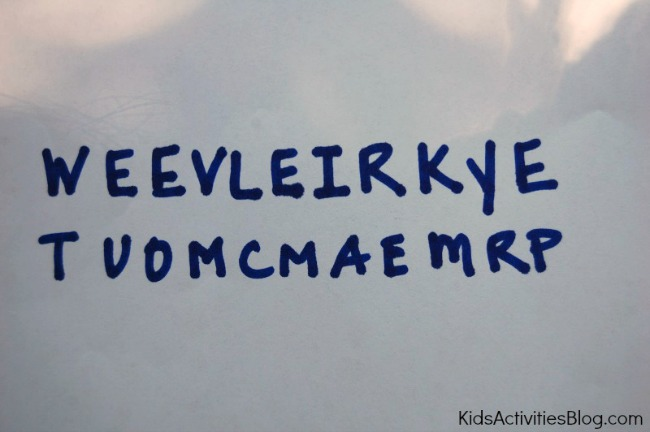 WEEVLEIRKYE
TUOMCMAEMRP
KidsActivitiesBlog.com